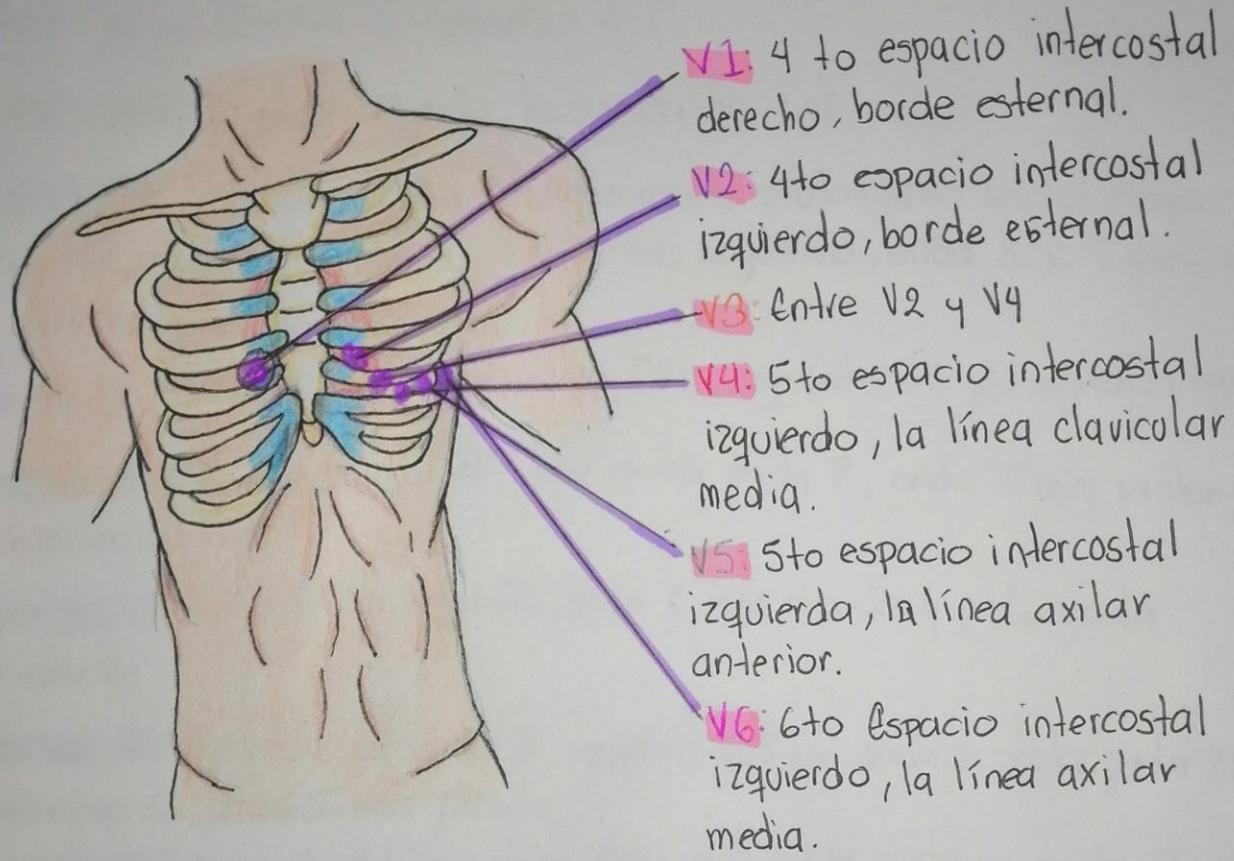 V1: 4 to espacio intercostal
derecho, borde esternal.
V2: 4to espacio intercostal
izquierdo, borde esternal.
V3: Entre V2 y V4
V4: 5to espacio intercostal
izquierdo, la línea clavicular
media.
V5: 5to espacio intercostal
izquierda, la línea axilar
anterior.
V6: 6to Espacio intercostal
izquierdo, la línea axilar
media.